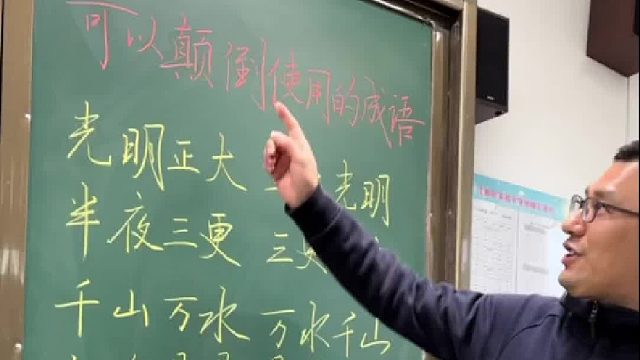 可以颠倒使用的成语
光明正大 光明
半夜三更 三更
千山万水 万水千山